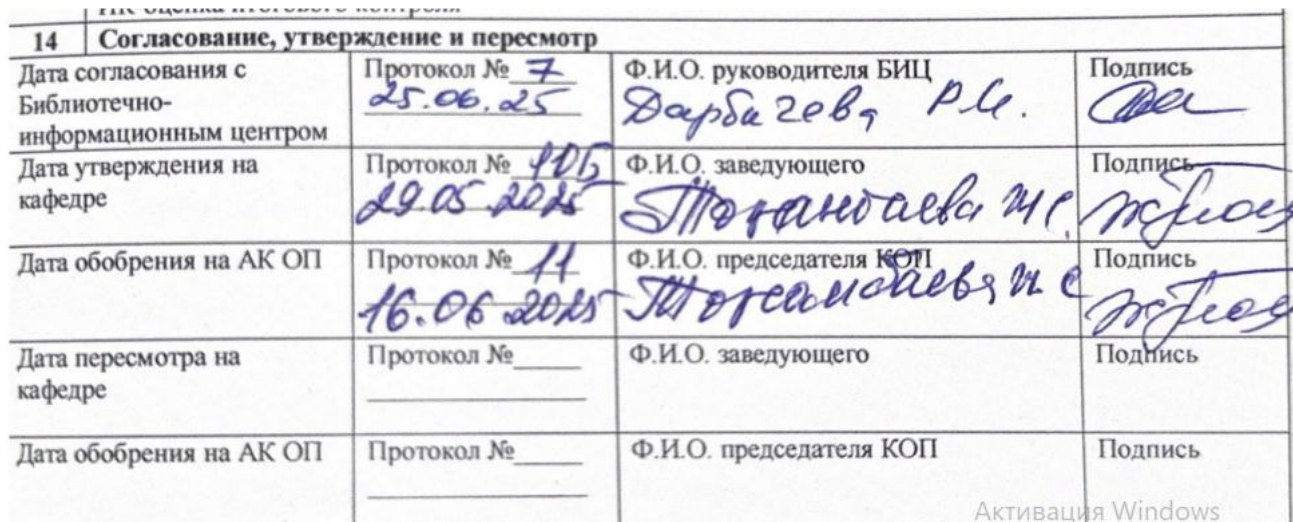 14 Согласование, утверждение и пересмотр
Дата согласования с Библиотечно-информационным центром
Протокол № 7
25.06.25
Ф.И.О. руководителя БИЦ
Дарбичева Р.И.
Подпись
Дата утверждения на кафедре
Протокол № 10Б
29.05.2025
Ф.И.О. заведующего
Ж С
Подпись
Дата обобрения на АК ОП
Протокол № 11
16.06.2025
Ф.И.О. председателя КОП
Ж С
Подпись
Дата пересмотра на кафедре
Протокол №
Ф.И.О. заведующего
Подпись
Дата обобрения на АК ОП
Протокол №
Ф.И.О. председателя КОП
Подпись
Активация Windows